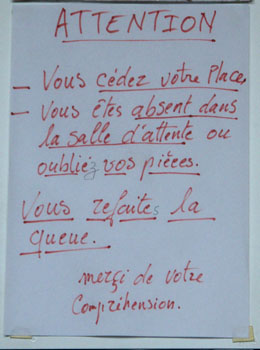 ATTENTION
- Vous cédez votre Place,
- Vous êtes absent dans
la salle d'attente ou
oubliez vos pièces.
Vous refaites la
queue.
merçi de votre
Compréhension.